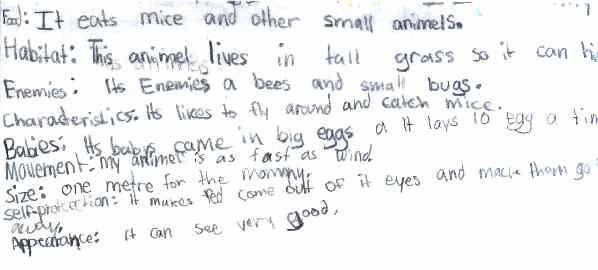 Food: It eats mice and other small animels.
Habitat: This animel lives in tall grass so it can
Enemies: Its Enemies a bees and small bugs.
Characteristics: Its likes to fly around and catch mice.
Babies: Its babys came in big eggs a It lays 10 Egg a tim
Movement: my animel is as fast as wind
Size: one metre for the mommy.
self-protection: It makes red come out of it eyes and make them go
away.
Appearance: it can see very good,